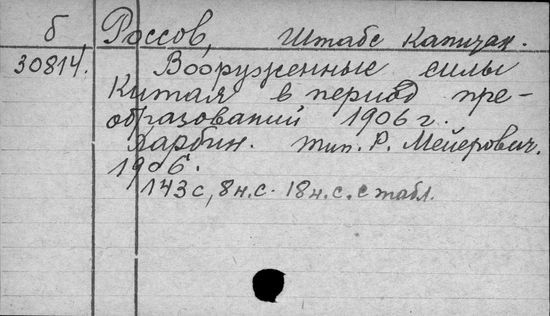 б Россов, Штабс Капитан.
30814. Вооруженные силы
Китая в период пре-
образований 1906 г.
Харбин. тип. Р. Мейерович.
1906.
143 с, 8 н.с. 18 н.с. с табл.